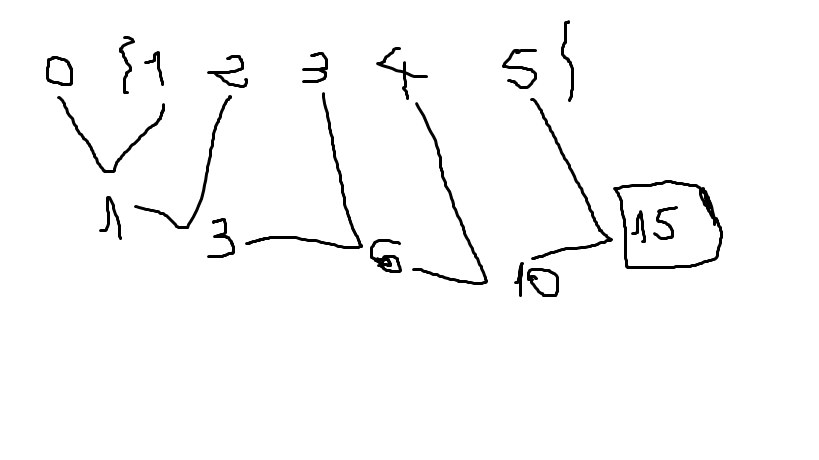 0 {1 2 3 4 5}
1 3 6 10 15